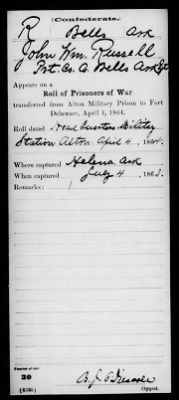 Confederate.
R Bells Ark
John Wm. Russell
Pvt. Co. A Bells Ark
Appears on a
Roll of Prisoners of War
transferred from Alton Military Prison to Fort
Delaware, April 4, 1864.
Roll dated Head Quarters Military
Station Alton April 4, 1864.
Where captured Helena Ark
When captured July 4, 1863.
Remarks:
Number of roll:
30
Copyist.